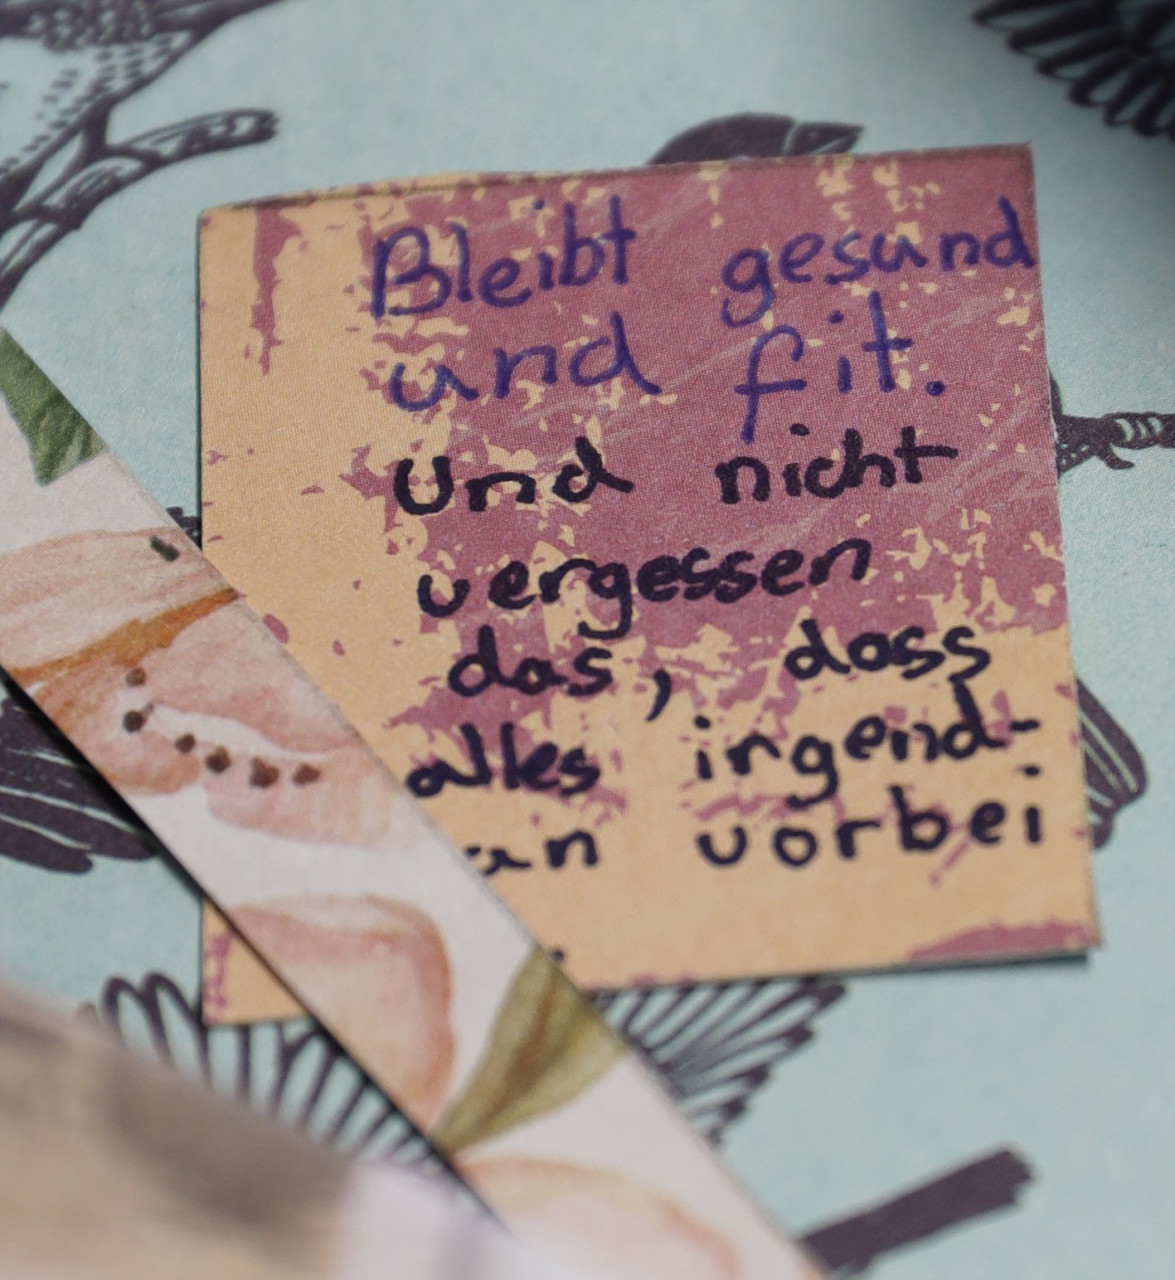 Bleibt gesund
und fit.
Und nicht
vergessen
das, dass
alles irgend-
an vorbei